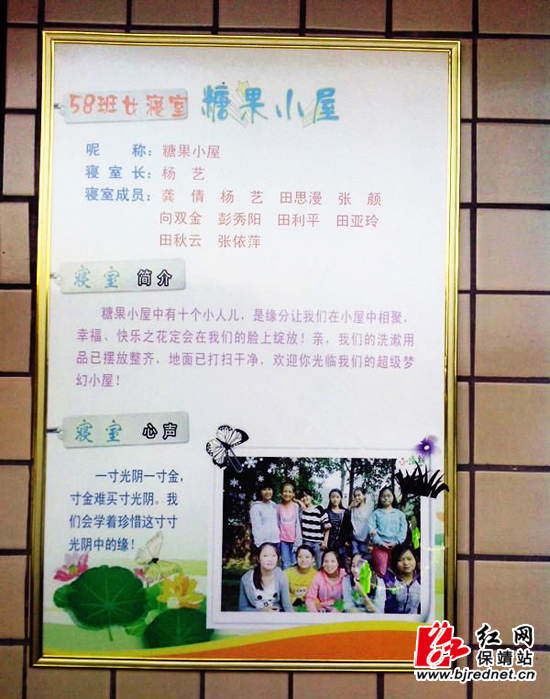 58班女寝室 糖果小屋
昵 称：糖果小屋
寝 室 长：杨 艺
寝室成员：龚 倩 杨 艺 田思漫 张 颜
向双金 彭秀阳 田利平 田亚玲
田秋云 张依萍
寝室 简介
糖果小屋中有十个小人儿，是缘分让我们在小屋中相聚，
幸福、快乐之花定会在我们的脸上绽放！亲，我们的洗漱用
品已摆放整齐，地面已打扫干净，欢迎你光临我们的超级梦
幻小屋！
寝室 心声
一寸光阴一寸金，
寸金难买寸光阴。我
们会学着珍惜这寸寸
光阴中的缘！
红网
保靖站
www.bjrednet.cn